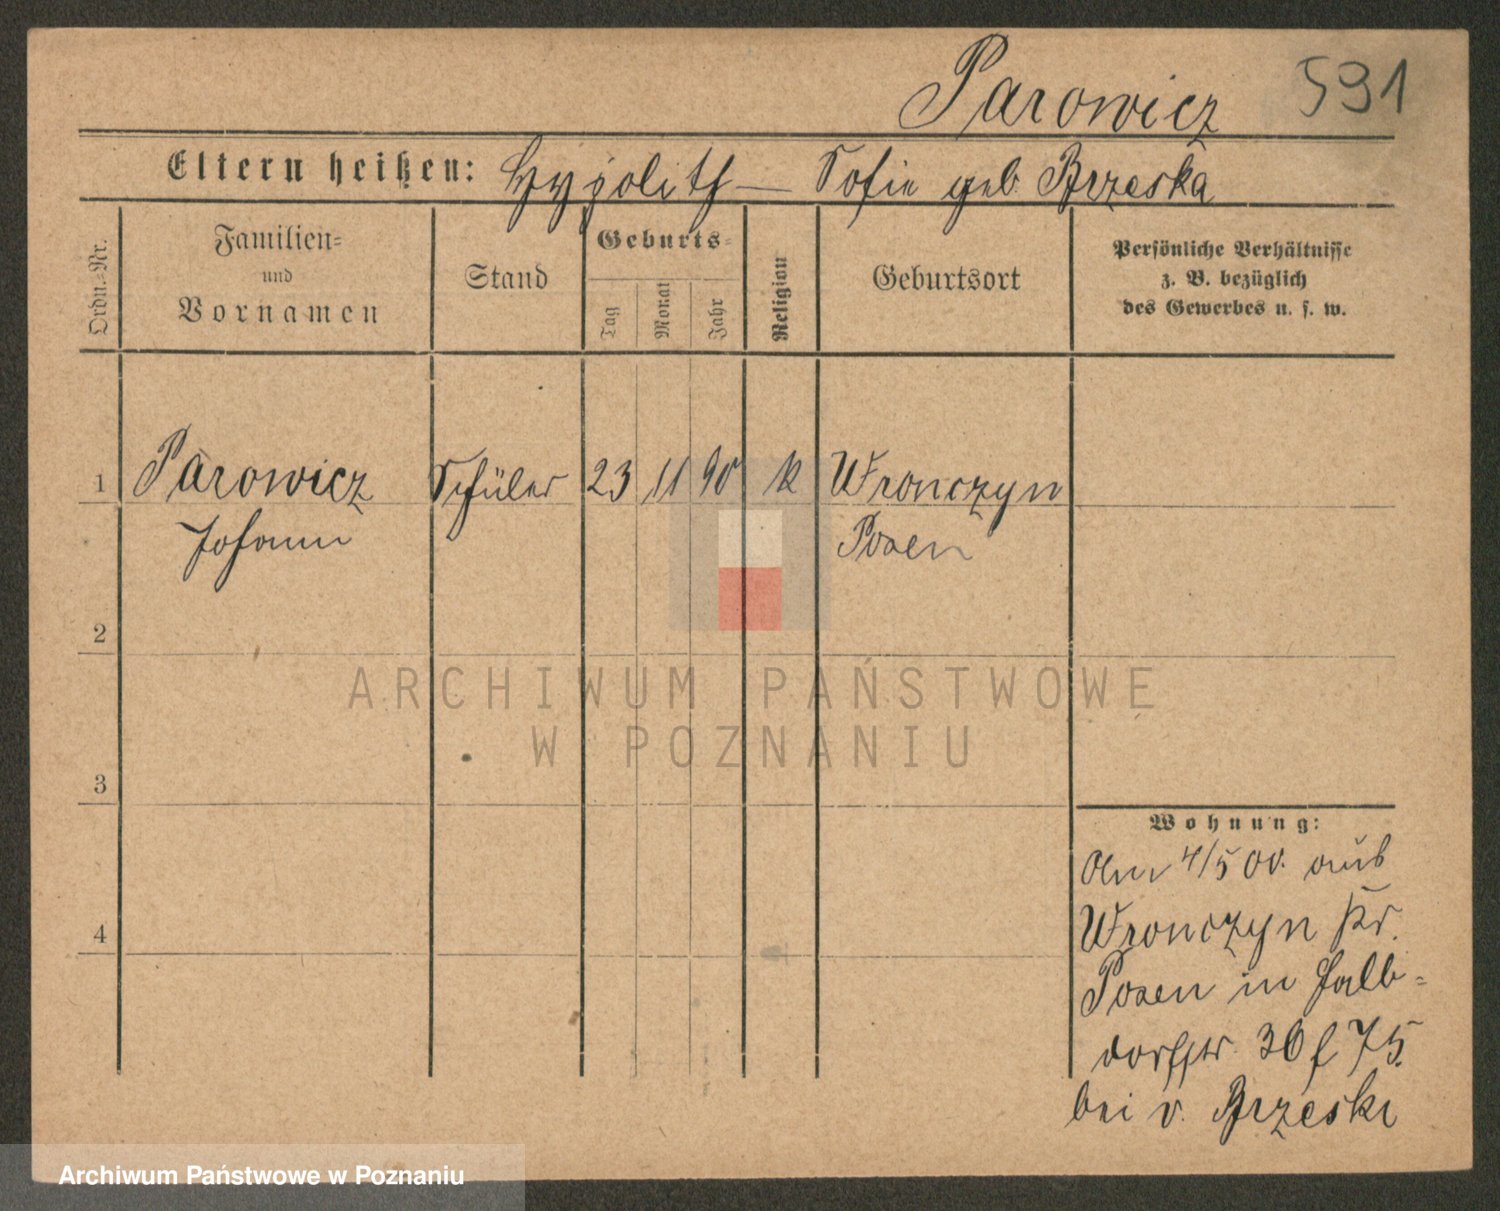 Parowicz 591
Eltern heißen: Hypolith — Sofie geb Brzeska
Ordn.=Nr.
Familien=
und
Vornamen
Stand
Geburts=
Tag
Monat
Jahr
Religion
Geburtsort
Persönliche Verhältnisse
z. B. bezüglich
des Gewerbes u. s. w.
1 Parowicz Schüler 23 11 90 k Wronczyn
Johann Posen
2
3
4
Wohnung:
4/5 00. aus
Wronczyn Kr.
Posen in Halb=
dorfstr. 30 f 75.
bei v. Brzeski
ARCHIWUM PAŃSTWOWE
W POZNANIU
Archiwum Państwowe w Poznaniu